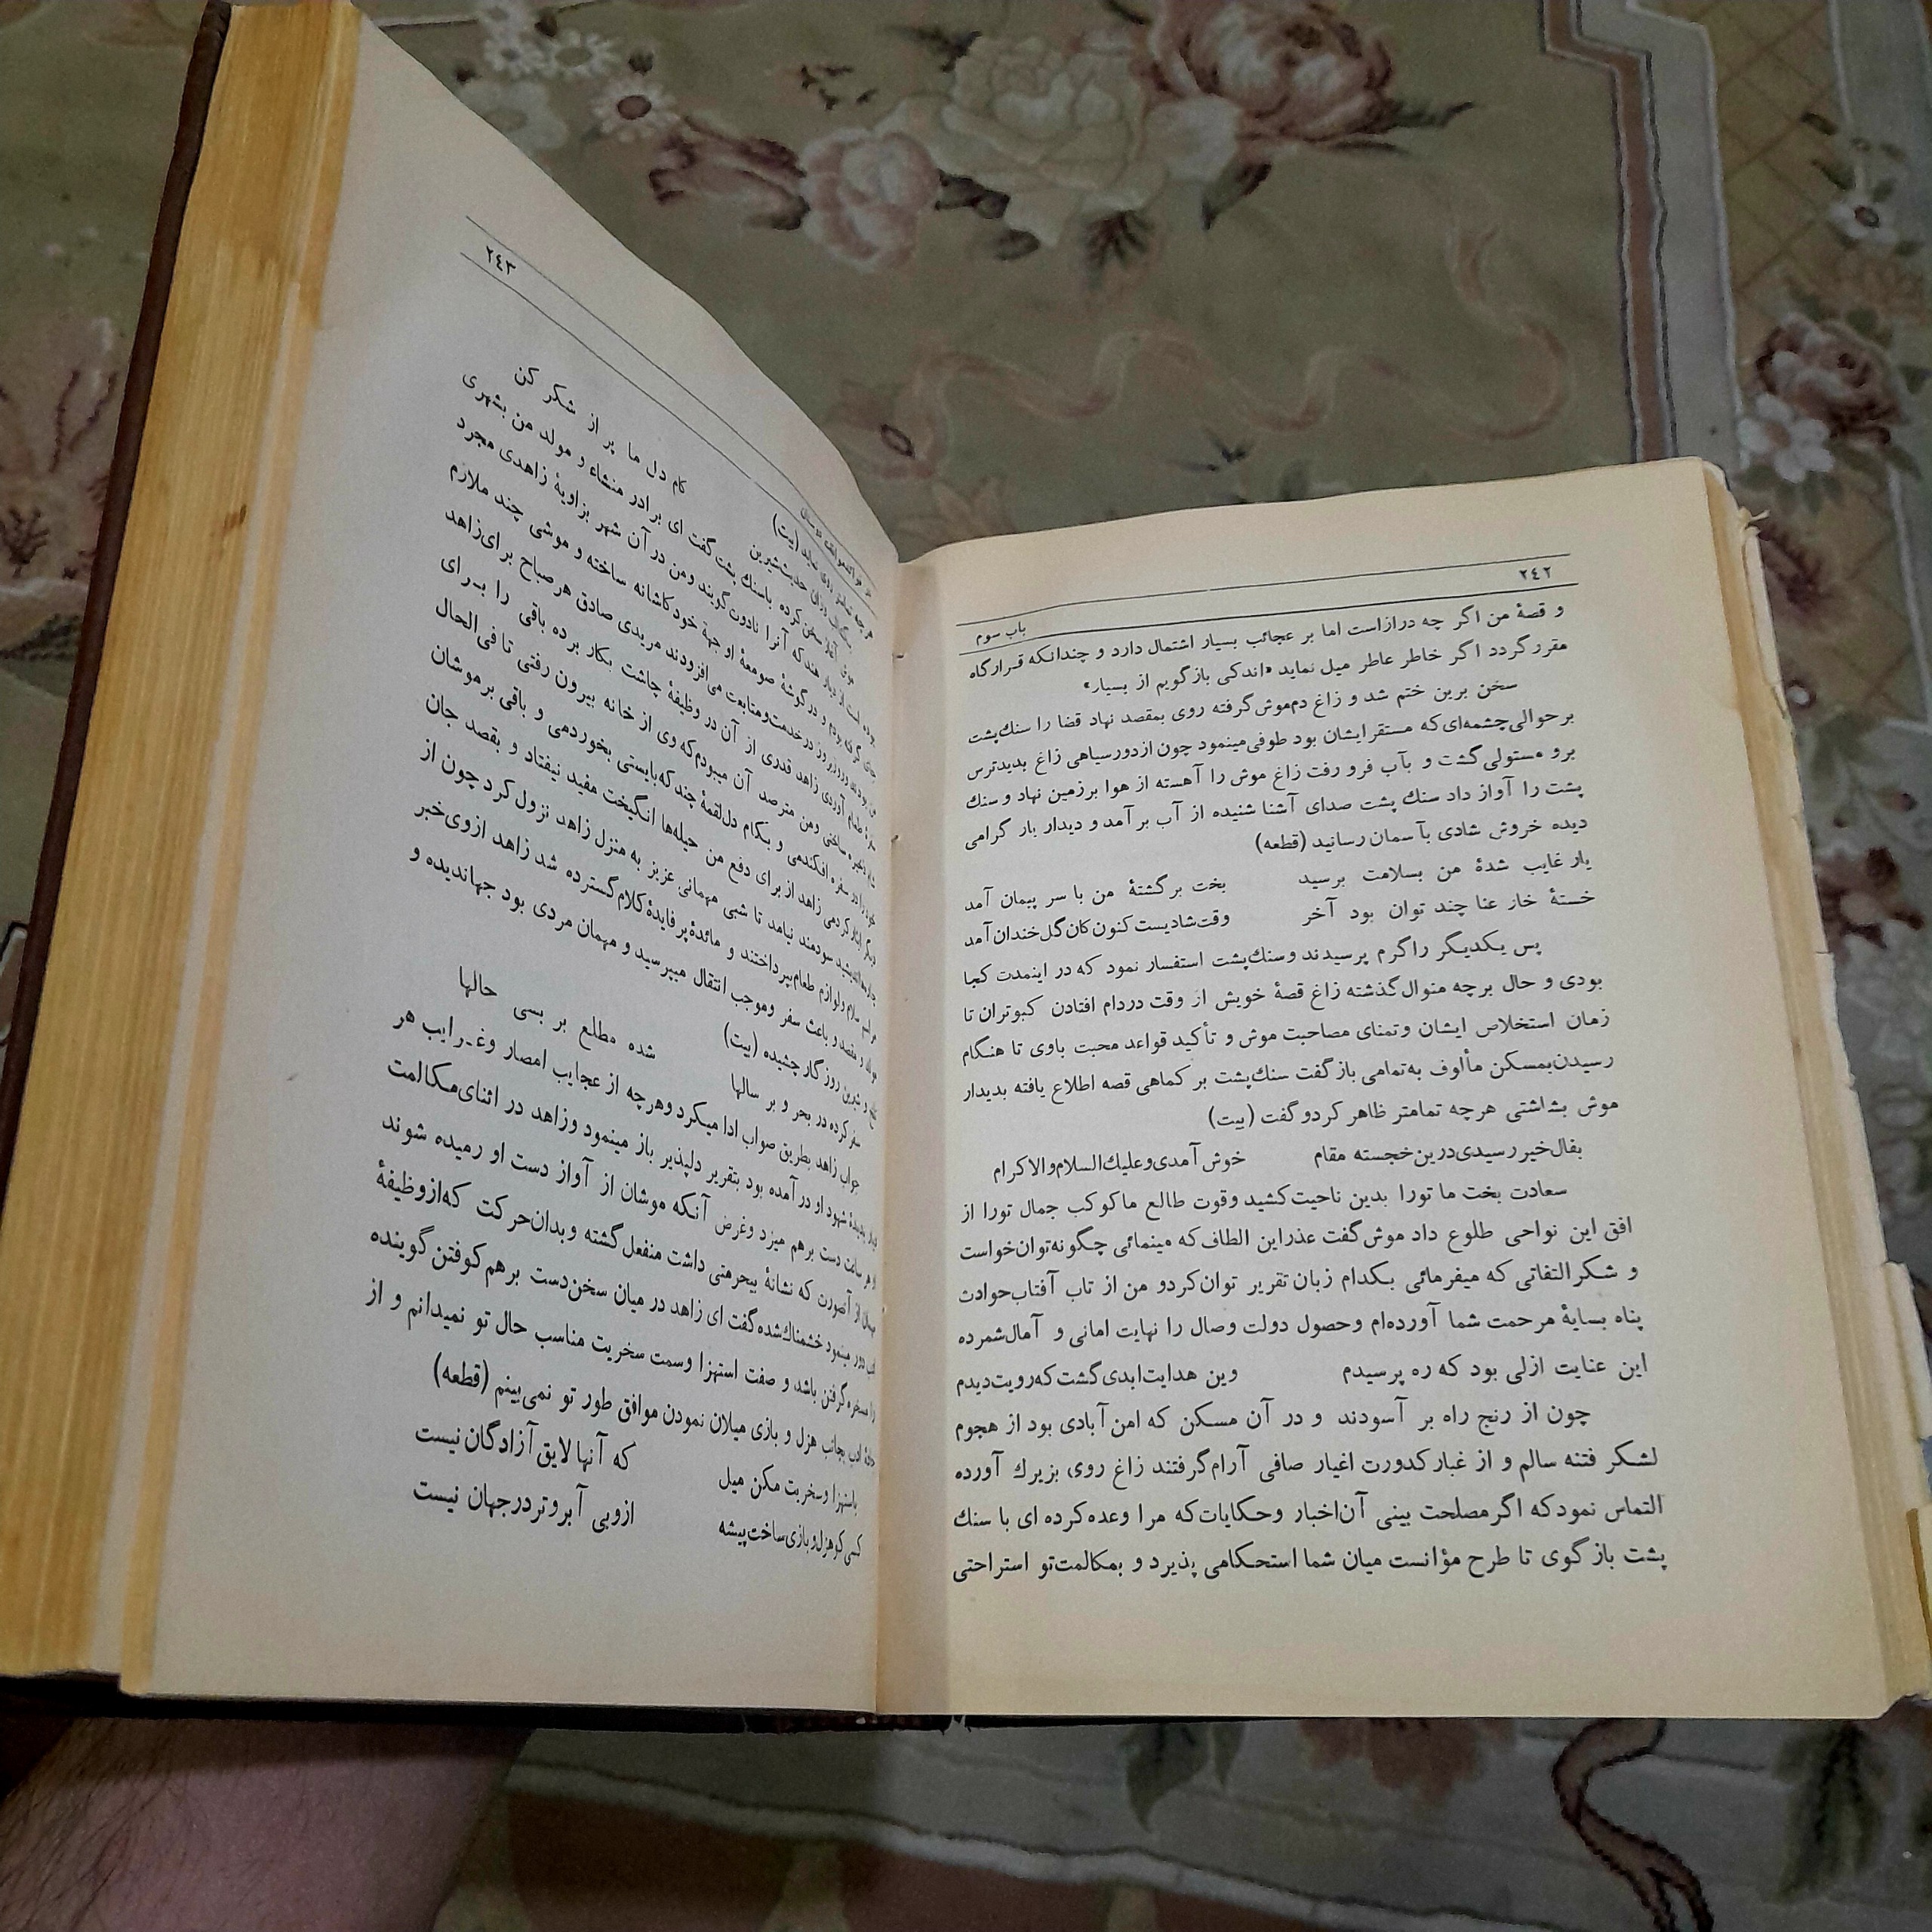 ۲٤۲
باب سوم
و قصهٔ من اگر چه درازاست اما بر عجائب بسیار اشتمال دارد و چندانکه قرارگاه
مقرر گردد اگر خاطر عاطر میل نماید «اندکی بازگویم از بسیار»
سخن برین ختم شد و زاغ دم‌موش گرفته روی بمقصد نهاد قضا را سنك‌پشت
برحوالی چشمه‌ای که مستقر ایشان بود طوفی مینمود چون از دور سیاهی زاغ بدید ترس
برو مستولی گشت و بآب فرو رفت زاغ موش را آهسته از هوا برزمین نهاد و سنك
پشت را آواز داد سنك پشت صدای آشنا شنیده از آب بر آمد و دیدار یار گرامی
دیده خروش شادی بآسمان رسانید (قطعه)
یار غایب شدهٔ من بسلامت برسید بخت برگشتهٔ من با سر پیمان آمد
خستهٔ خار عنا چند توان بود آخر وقت شادیست کنون کان گل خندان آمد
پس یکدیگر را گرم پرسیدند و سنك‌پشت استفسار نمود که در اینمدت کجا
بودی و حال برچه منوال گذشته زاغ قصهٔ خویش از وقت دردام افتادن کبوتران تا
زمان استخلاص ایشان و تمنای مصاحبت موش و تأکید قواعد محبت باوی تا هنگام
رسیدن بمسکن مألوف به‌تمامی بازگفت سنك‌پشت بر کماهی قصه اطلاع یافته بدیدار
موش بشاشتی هرچه تمامتر ظاهر کرد و گفت (بیت)
بفال خیر رسیدی درین خجسته مقام خوش آمدی و علیك السلام و الاکرام
سعادت بخت ما تورا بدین ناحیت کشید وقوت طالع ما کوکب جمال تورا از
افق این نواحی طلوع داد موش گفت عذر این الطاف که مینمائی چگونه توان خواست
و شکر التفاتی که میفرمائی بکدام زبان تقریر توان کرد و من از تاب آفتاب حوادث
پناه بسایهٔ مرحمت شما آورده‌ام وحصول دولت وصال را نهایت امانی و آمال شمرده
این عنایت ازلی بود که ره پرسیدم وین هدایت ابدی گشت که رویت دیدم
چون از رنج راه بر آسودند و در آن مسکن که امن آبادی بود از هجوم
لشکر فتنه سالم و از غبار کدورت اغیار صافی آرام گرفتند زاغ روی بزیرك آورده
التماس نمود که اگر مصلحت بینی آن اخبار و حکایات که مرا وعده کرده ای با سنك
پشت بازگوی تا طرح مؤانست میان شما استحکامی پذیرد و بمکالمت تو استراحتی
۲٤۳
روی نماید (بیت)
حدیث شیرین کام دل ما پر از شکر کن
سخن کرده باسنك پشت گفت ای برادر منشاء و مولد من بشهری
هند که آنرا نادوت گویند ومن در آن شهر بزاویهٔ زاهدی مجرد
گرفته بودم و در گوشهٔ صومعهٔ او جهة خود کاشانه ساخته و موشی چند ملازم
روز بروز درخدمت ومتابعت می‌افزودند مریدی صادق هر صباح برای زاهد
آوردی زاهد قدری از آن در وظیفهٔ چاشت بکار برده باقی را برای
ساختی ومن مترصد آن میبودم که وی از خانه بیرون رفتی تا فی‌الحال
در سفره افکندمی و بکام دل لقمهٔ چند که بایستی بخوردمی و باقی برموشان
کردمی زاهد از برای دفع من حیله‌ها انگیخت مفید نیفتاد و بقصد جان
سودمند نیامد تا شبی مهمانی عزیز به منزل زاهد نزول کرد چون از
سلام ولوازم طعام بپرداختند و مائدهٔ پرفایدهٔ کلام گسترده شد زاهد ازوی خبر
مقصد و باعث سفر وموجب انتقال میپرسید و مهمان مردی بود جهاندیده و
شیرین روزگار چشیده (بیت)
سفر کرده در بحر و بر سالها شده مطلع بر بسی حالها
جواب زاهد بطریق صواب ادا میکرد وهرچه از عجایب امصار وغرایب هر
شهود او در آمده بود بتقریر دلپذیر باز مینمود وزاهد در اثنای مکالمت
هر ساعت دست برهم میزد وغرض آنکه موشان از آواز دست او رمیده شوند
از آنصورت که نشانهٔ بیحرمتی داشت منفعل گشته وبدان حرکت که از وظیفهٔ
ادب دور مینمود خشمناك شده گفت ای زاهد در میان سخن دست برهم کوفتن گوینده
را مسخره گرفتن باشد و صفت استهزا وسمت سخریت مناسب حال تو نمیدانم و از
ادب بجانب هزل و بازی میلان نمودن موافق طور تو نمی‌بینم (قطعه)
باستهزا وسخریت مکن میل که آنها لایق آزادگان نیست
کسی کو هزل و بازی ساخت پیشه ازوبی آبروتر در جهان نیست